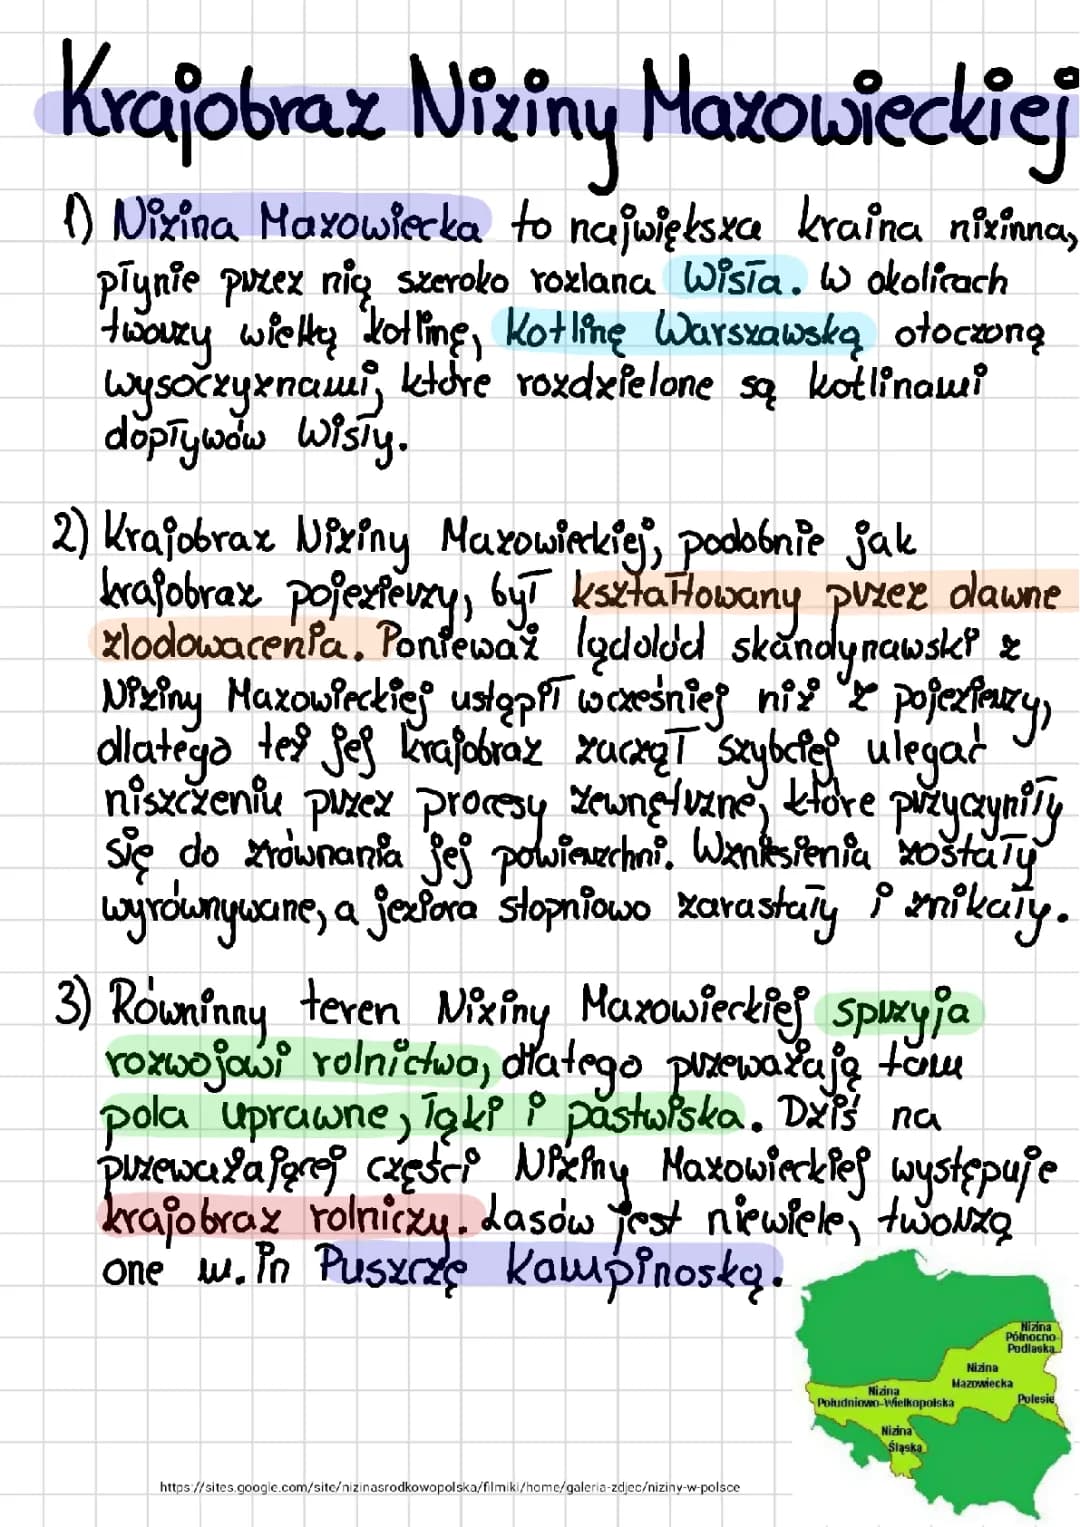 Krajobraz Niziny Mazowieckiej
1) Nizina Mazowiecka to największa kraina nizinna,
płynie przez nią szeroko rozlana Wisła. W okolicach
tworzy wielką kotlinę, Kotlinę Warszawską otoczoną
wysoczyznami, które rozdzielone są kotlinami
dopływów Wisły.
2) Krajobraz Niziny Mazowieckiej, podobnie jak
krajobraz pojezierzy, był kształtowany przez dawne
zlodowacenia. Ponieważ lądolód skandynawski z
Niziny Mazowieckiej ustąpił wcześniej niż z pojezierzy,
dlatego też jej krajobraz zaczął szybciej ulegać
niszczeniu przez procesy zewnętrzne, które przyczyniły
się do zrównania jej powierzchni. Wzniesienia zostały
wyrównywane, a jeziora stopniowo zarastały i znikały.
3) Równinny teren Niziny Mazowieckiej sprzyja
rozwojowi rolnictwa, dlatego przeważają tam
pola uprawne, łąki i pastwiska. Dziś na
przeważającej części Niziny Mazowieckiej występuje
krajobraz rolniczy. Lasów jest niewiele, tworzą
one m.in Puszczę Kampinoską.
Nizina
Północno-
Podlaska
Nizina
Mazowiecka
Nizina
Południowo-Wielkopolska
Polesie
Nizina
Śląska
https://sites.google.com/site/nizinasrodkowopolska/filmiki/home/galeria-zdjec/niziny-w-polsce